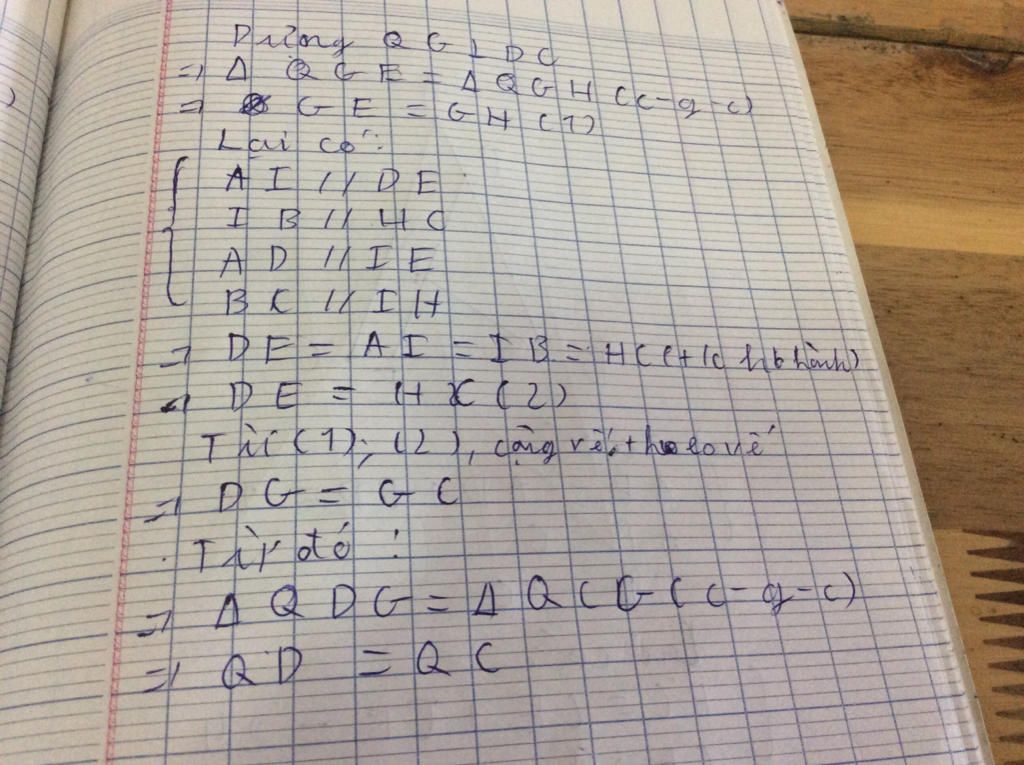 Dựng QG ⊥ DC
=> Δ QGE = Δ QGH (c-g-c)
=> GE = GH (1)
Lại có:
AI // DE
IB // HC
AD // IE
BC // IH
=> DE = AI = IB = HC (t/c hb hành)
=> DE = HC (2)
Từ (1); (2), cộng vế theo vế
=> DG = GC
Từ đó :
=> Δ QDG = Δ QCG (c-g-c)
=> QD = QC